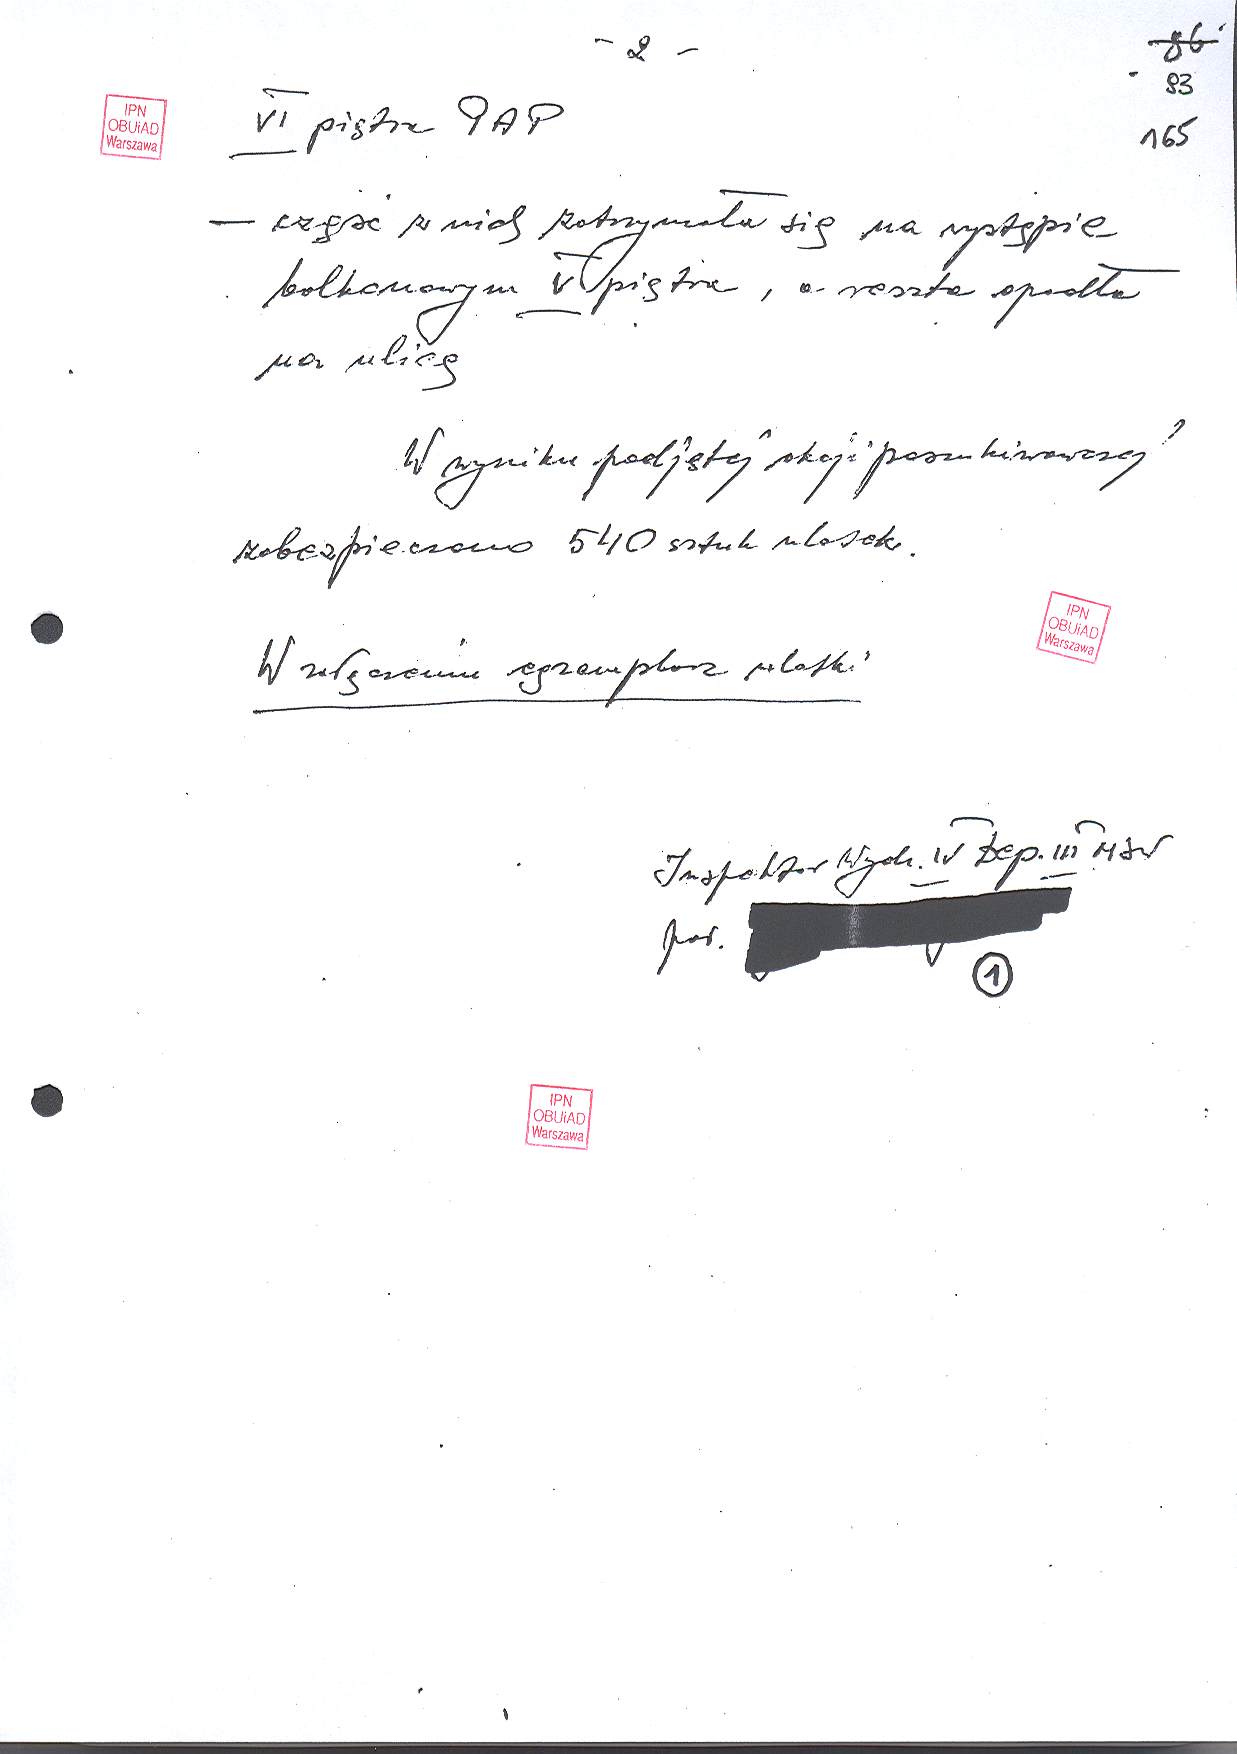 - 2 -
86
93
165
IPN
OBUiAD
Warszawa
VI piętra PAP
— część z nich zatrzymała się na występie
balkonowym V piętra, a reszta opadła
na ulicę
W wyniku podjętej akcji poszukiwawczej
zabezpieczono 540 sztuk ulotek.
IPN
OBUiAD
Warszawa
W załączeniu egzemplarz ulotki
Inspektor Wydz. IV Dep. III MSW
por.
1
IPN
OBUiAD
Warszawa